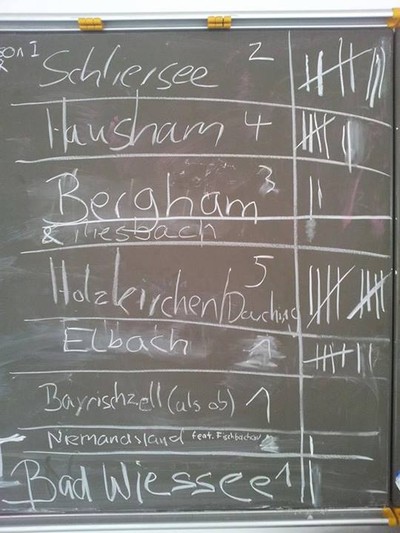 Schliersee 2
Hausham 4
Bergham 3
& Miesbach
Holzkirchen/ 5
Elbach 1
Bayrischzell (als ob) 1
Niemandsland feat. Fischbachau
Bad Wiessee 1